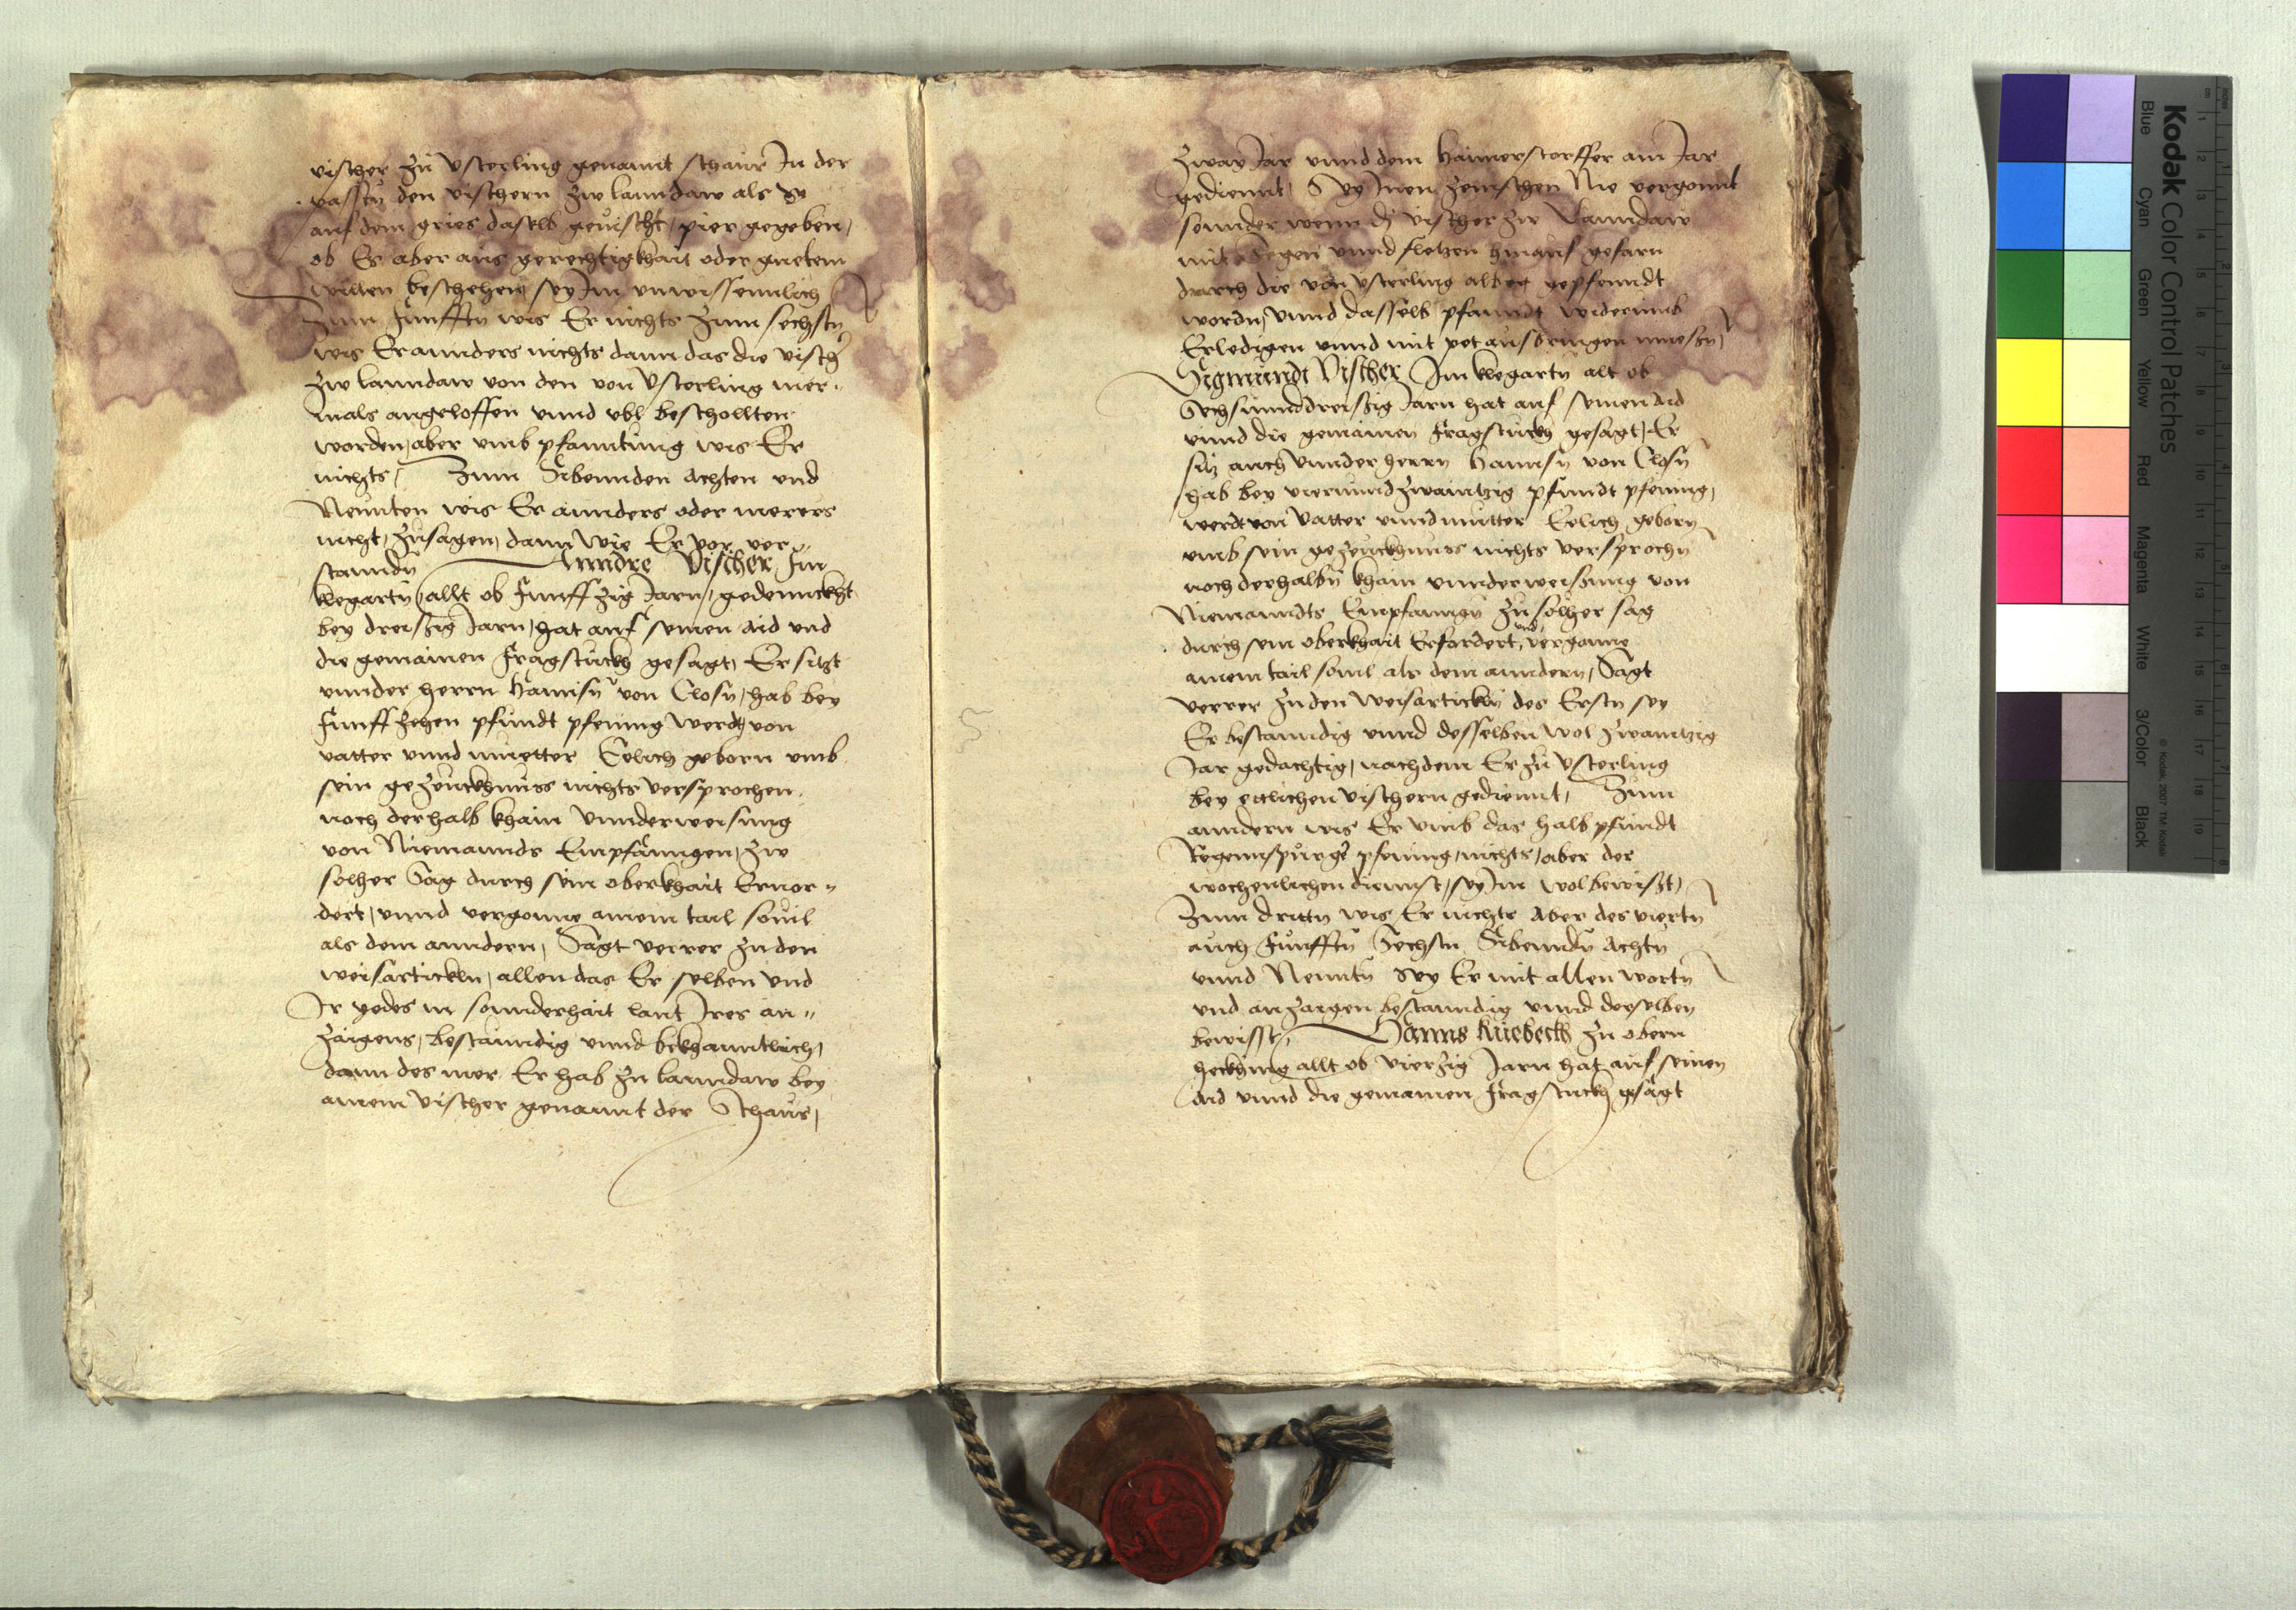 vischer zu Vsterling genannt schaur In der
vasstn den vischern zw lanndaw als Sy
auf dem gries daselb geuischt, pier gegeben,
ob Er aber aus gerechtigkhait oder guetem
willen beschehen sey Im vnwissennlich
Zum Funfftn wis Er nichts Zum sechstn
wis Er annders nichts dann das die visch
zw lanndaw von den von Vsterling mer„
mals angeloffen vnnd vbl bescholltten
worden, aber vmb pfanntung wis Er
nichts, Zum Sibennden achten vnd
Neunten wis Er annders oder merers
nicht, zusagen, dann wie Er vor ver„
stanndn Anndre Vischer Im
wegartn allt ob Funffzig Jarn, gedennckht
bey dreissig Jarn, hat auf seinen aid vnd
die gemainen Fragstuckh gesagt, Er sitzt
vnnder herrn Hannsn von Closn, hab bey
Funffzehen pfundt pfening werdt, von
vatter vnnd muetter Eelich geborn vmb
sein gezeuckhnuss nichts versprochen
noch derhalb khain vnnderweisung
von Niemannds Empfanngen, zw
solher Sag durch sein oberkhait Eruor„
dert, vnnd vergonne ainem tail souil
als dem anndern, Sagt verrer zu den
weisartickln, allen das Er selben vnd
Ir yedes in sonnderhait laut Ires an„
zaigens, bestanndig vnnd bekhanntlich,
dann des mer Er hab zu lanndaw bey
ainem vischer genannt der Schaur,
zway Jar vnnd dem Haimerstorffer ain Jar
gediennt, Sey Inen zeuischen Nie vergonnt
sonnder wenn dy vischer zw Lanndaw
mit Segen vnnd flotzen hinauf gefarn
durch die von Vsterling alweg gepfenndt
wordn, vnnd dasselb pfanndt widerumb
Erledigen vnnd mit pet ausbringen muessn,
Sigmundt Vischer Im wegartn alt ob
Sechsunnddreissig Jarn hat auf seinen Aid
vnnd die gemainen fragstuckh gesagt, Er
sitz auch vnnder herrn Hannsn von Closn
hab bey vierunndzwaintzig pfundt pfening,
werdt von Vatter vnnd mutter Eelich geborn
vmb sein gezeuckhnuss nichts versprochn
noch derhalbn khain vnnderweisung von
Niemanndts Empfanngn zu solher sag
durch sein oberkhait Erfordert, vnd vergonne
ainem tail souil als dem anndern, Sagt
verrer zu den weisartickln des Erstn sey
Er bestanndig vnnd desselben wol zwaintzig
Jar gedachtig, nachdem Er zu Vsterling
bey etlichen vischern gediennt, Zum
anndern wis Er vmb das halb pfundt
Regennspurger pfening, nichts, aber der
wochenlichen diennst, sey Im wol bewisst,
Zum dritn wis Er nichts Aber des viertn
auch Funfftn Sechstn Sibenndn Achtn
vnnd Neuntn sey Er mit allen wortn
vnd anzaigen bestanndig vnnd derselben
bewisst, Hanns Kuebeckh zu obern
heckhing allt ob vierzig Jarn hat auf seinen
aid vnnd die gemainen fragstuckh gesagt
Kodak Color Control Patches
Blue Cyan Green Yellow Red Magenta White 3/Color Black
© Kodak, 2007 TM: Kodak